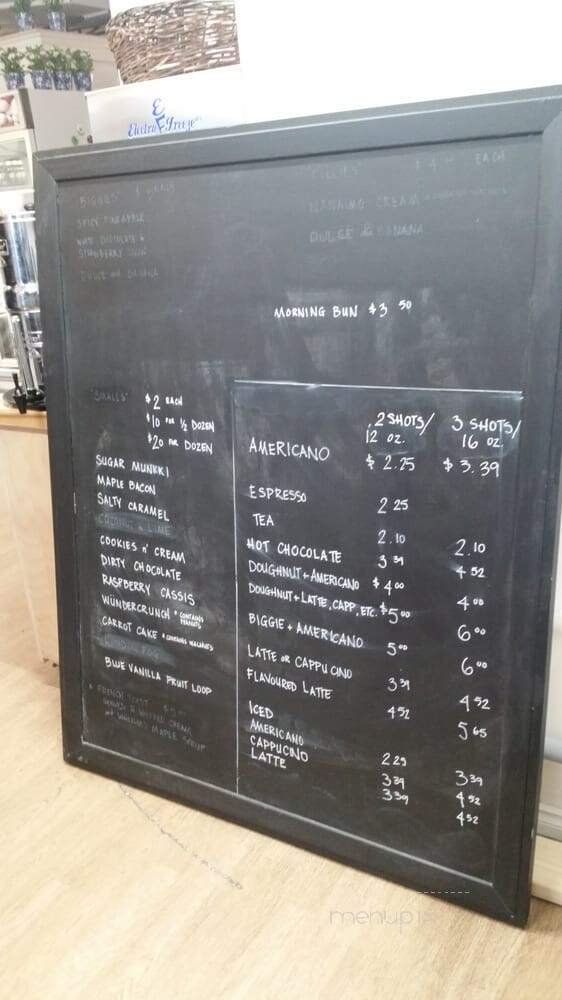 Electro Freeze
SPICY PINEAPPLE
STRAWBERRY
DULCE BANANA
EACH
CREAM
DULCE BANANA
MORNING BUN $3 50
"SMALLS" $2 EACH
$10 PER ½ DOZEN
$20 PER DOZEN
SUGAR MUNKKI
MAPLE BACON
SALTY CARAMEL
COCONUT & LIME
COOKIES N' CREAM
DIRTY CHOCOLATE
RASPBERRY CASSIS
WÜNDERCRUNCH * CONTAINS PEANUTS
CARROT CAKE * CONTAINS WALNUTS
BLUE VANILLA FRUIT LOOP
* FRENCH TOAST
MAPLE SYRUP
2 SHOTS/ 3 SHOTS/
12 OZ. 16 OZ.
AMERICANO $2.25 $3.39
ESPRESSO 2 25
TEA 2.10 2.10
HOT CHOCOLATE 3 39 4 52
DOUGHNUT + AMERICANO $4 00 4 00
DOUGHNUT + LATTE, CAPP, ETC. $5 00 6 00
BIGGIE + AMERICANO 5 00 6 00
LATTE OR CAPPUCINO 3 39 4 52
FLAVOURED LATTE 4 52 5 65
ICED
AMERICANO 2 25 3 39
CAPPUCINO 3 39 4 52
LATTE 3 39 4 52
menupix